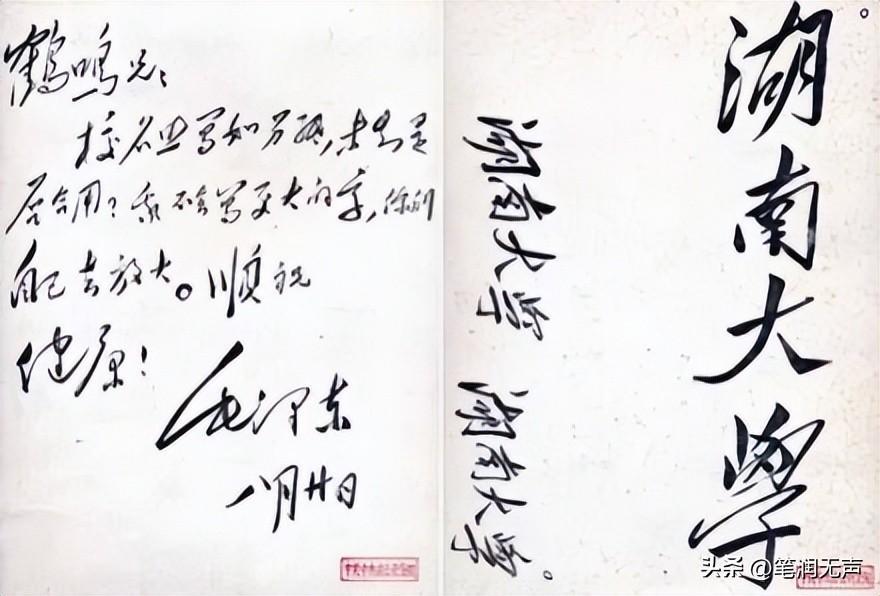 鶴鳴兄：
校名业写如另纸，未知是
否合用？我不会写更大的字，你们
自己去放大。順祝
健康！
毛泽东
八月廿日
湖南大學
湖南大学 湖南大学。
头条 @笔润无声